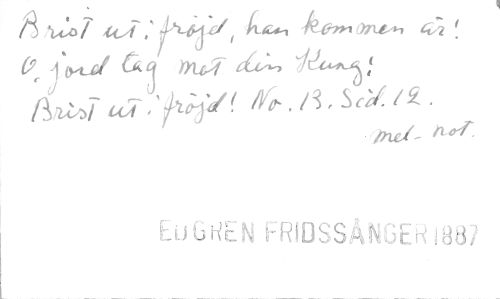 Brist ut i fröjd, han kommen är!
O, jord tag mot din Kung!
Brist ut i fröjd! No. 13. Sid. 12.
mel- not.
EUGREN FRIDSSÅNGER 1887